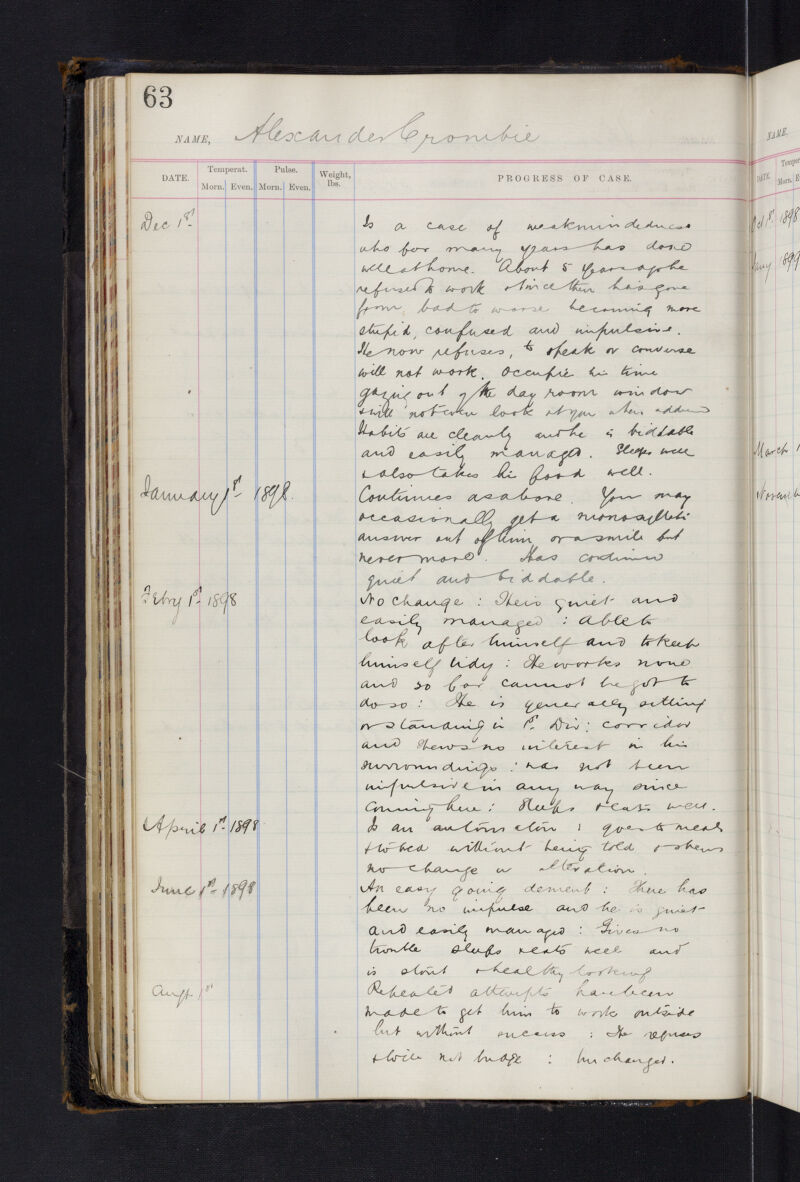 63
NAME, Alexander Crombie
DATE. Temperat. Pulse. Weight, lbs. PROGRESS OF CASE.
Morn. Even. Morn. Even.
Dec 1st Is a case of weakmindedness
who for many years has done
well at home. About 5 years ago he
refused to work & since then has gone
from bad to worse becoming more
stupid, confused and impulsive.
He now refuses, to speak or converse
will not work. occupies his time
gazing out of the day room window
& will not even look at you when addressed
Habits are cleanly and he is biddable
and easily managed. Sleeps well
& also takes his food well.
January 1st 1898. Continues as above. You may
occasionally get a monosyllabic
answer out of him, or a smile but
never more. Has continued
quiet and biddable.
Febry 1st 1898 No change: He is quiet and
easily managed: able to
look after himself and to keep
himself tidy: He works none
and so far cannot be got to
do so: He is generally sitting
or standing in 1st Div: corridor
and shews no interest in his
surroundings: has not been
impulsive in any way since
coming here: sleeps & eats well.
April 1st 1898 Is an automaton: goes to meals
& to bed without being told & shews
no change or alteration.
June 1st 1898 An easy going dement: There has
been no impulse and he is quiet
and easily managed: Gives no
trouble sleeps & eats well and
is stout & healthy looking
Augt. 1st Repeated attempts have been
made to get him to work outside
but without success: He refuses
& will not budge: Unchanged.
NAME.
DATE. Morn.
Oct 1st 1898
1899
March 1